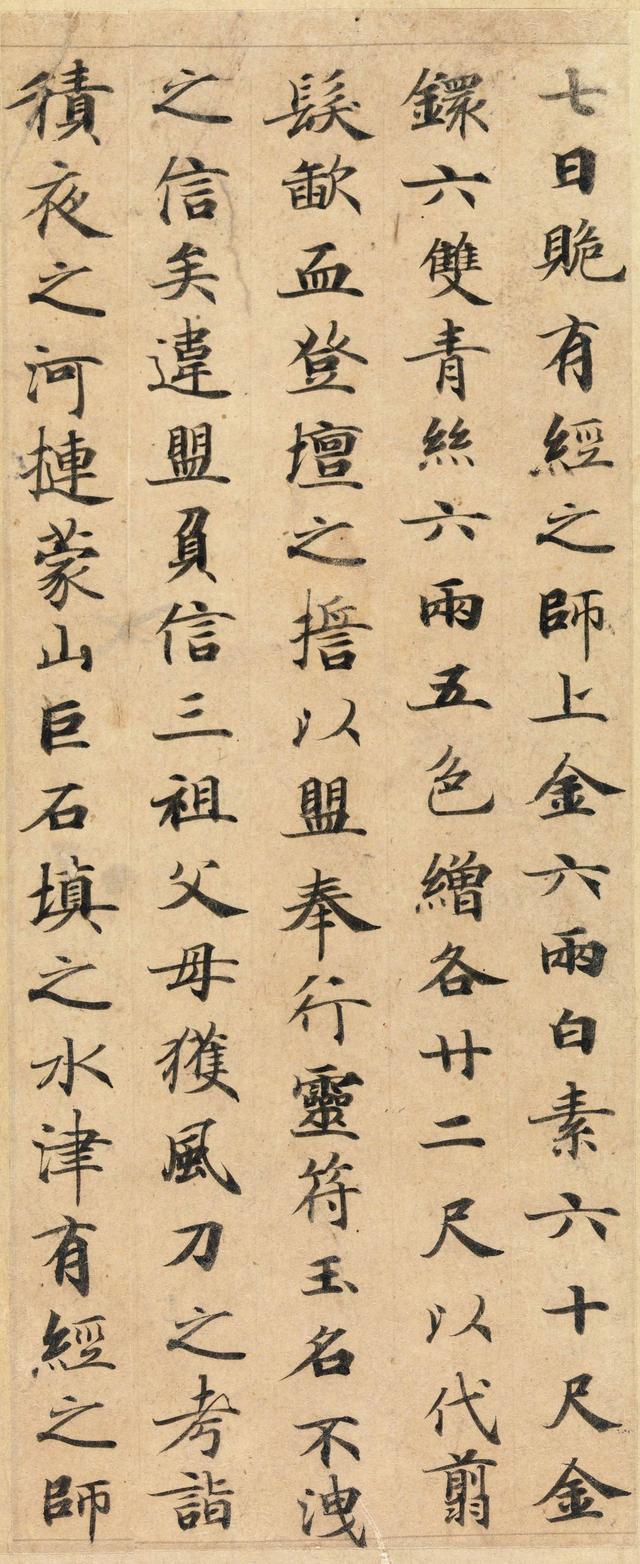 七日賝有經之師上金六兩白素六十尺金
鐶六雙青絲六兩五色繒各廿二尺以代翦
髮歃血登壇之擔以盟奉行靈符玉名不洩
之信矣違盟負信三祖父母獲風刀之考詣
積夜之河摙蒙山巨石填之水津有經之師